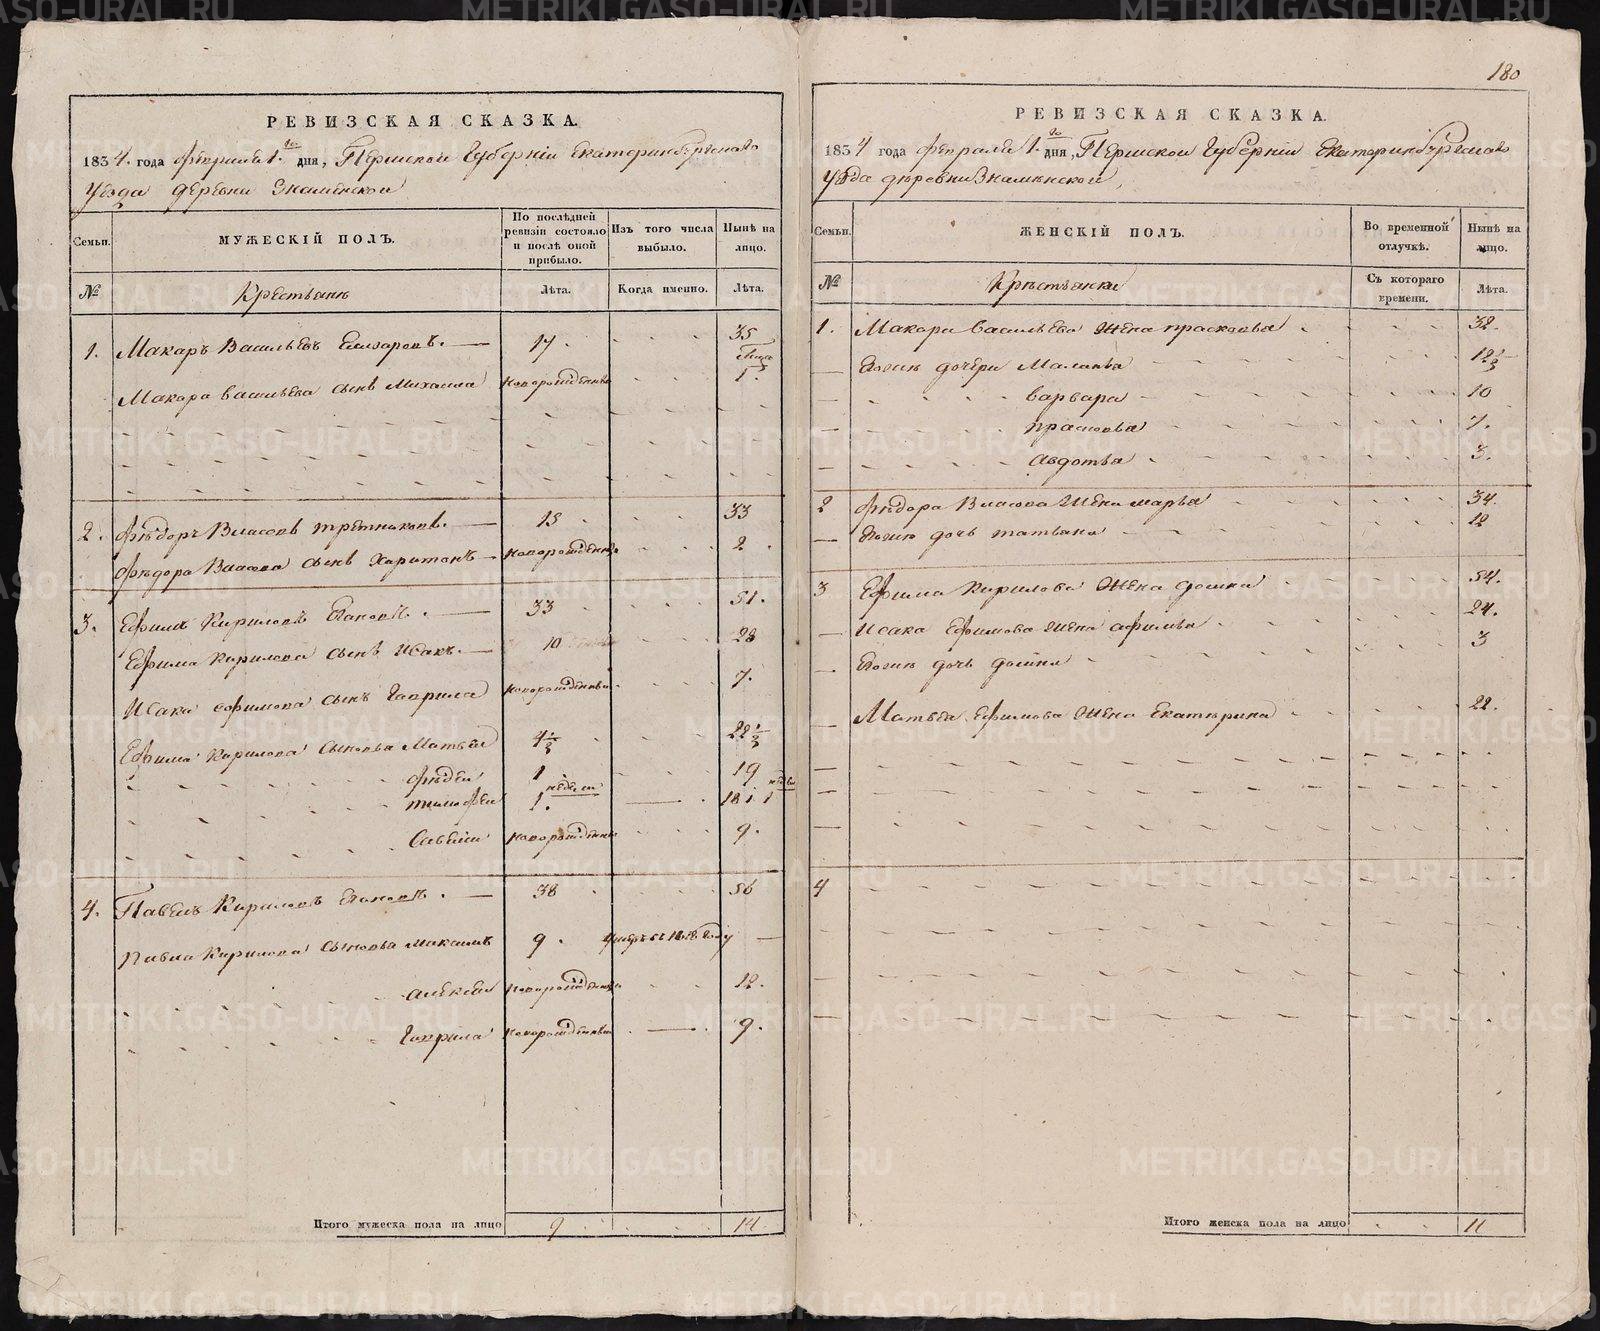 180
РЕВИЗСКАЯ СКАЗКА.
1834. года февраля 1.го дня, Пермской Губерніи Екатеринбургскаго
уезда деревни Знаменской
Семьи. МУЖЕСКІЙ ПОЛЪ. По послѣдней ревизіи состояло и послѣ оной прибыло. Изъ того числа выбыло. Нынѣ на лицо.
№ Крестьянѣ Лѣта. Когда именно. Лѣта.
1. Макаръ Васильевъ 17 35
Макара васильева сынъ Михаила новорожденный 1.
2. Фѣдоръ Власовъ третниковъ. 15 33
Фѣдора Власова сынъ Харитонъ новорожденный 2
3. Ефимъ Кириловъ Пановъ. 33 51.
Ефима Кирилова сынъ Исакъ. 10 28
Исака ефимова сынъ Гаврила новорожденный 7.
Ефима Кирилова сыновья Матвей 4½ 22½
фѣдей 1 19
тимофей 1. недели 18 1
Савелий новорожденный 9.
4. Павелъ Кириловъ Пановъ. 38 56
Павла Кирилова сыновья Максимъ 9. году
алексей новорожденный 12.
Гаврила новорожденный 9.
Итого мужеска пола на лицо 9 14.
РЕВИЗСКАЯ СКАЗКА.
1834 года февраля 1.го дня, Пермской Губерніи Екатеринбургскаго
уѣзда деревни Знамѣнской,
Семьи. ЖЕНСКІЙ ПОЛЪ. Во временной отлучкѣ. Нынѣ на лицо.
№ Крѣстьянки Съ котораго времени. Лѣта.
1. Макара васильева жена прасковья 32.
Погию дочери Маланья 12½
варвара 10
прасковья 7.
авдотья 3.
2 Фѣдора Власова жена марья 34.
Погию дочь татьяна 12
3 Ефима Кирилова жена дошка 54.
Исака Ефимова жена афимья 24.
Погию дочь дошка 3
Матвея Ефимова жена Екатѣрина 22.
4
Итого женска пола на лицо 11
METRIKI.GASO-URAL.RU